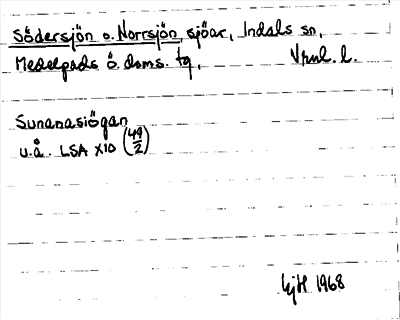 Södersjön o. Norrsjön, sjöar, Indals sn,
Medelpads ö. doms. tg, Vrnl. l.
Sunanasiögan
u.å. LSA X10 (49/2)
GjH 1968